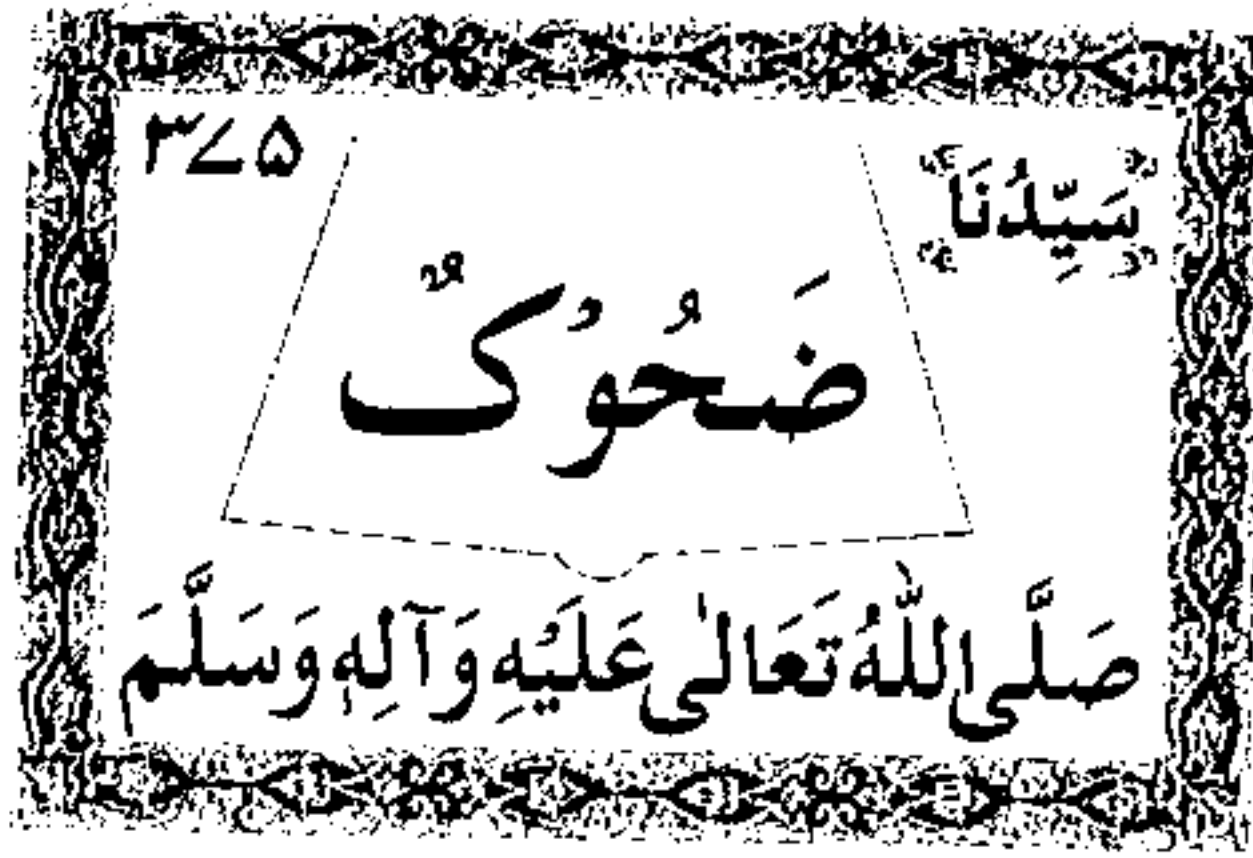 ۳۷۵
سَيِّدُنَا
ضَحُوْکٌ
صَلَّى اللّٰهُ تَعَالٰى عَلَيْهِ وَآلِهٖ وَسَلَّمَ